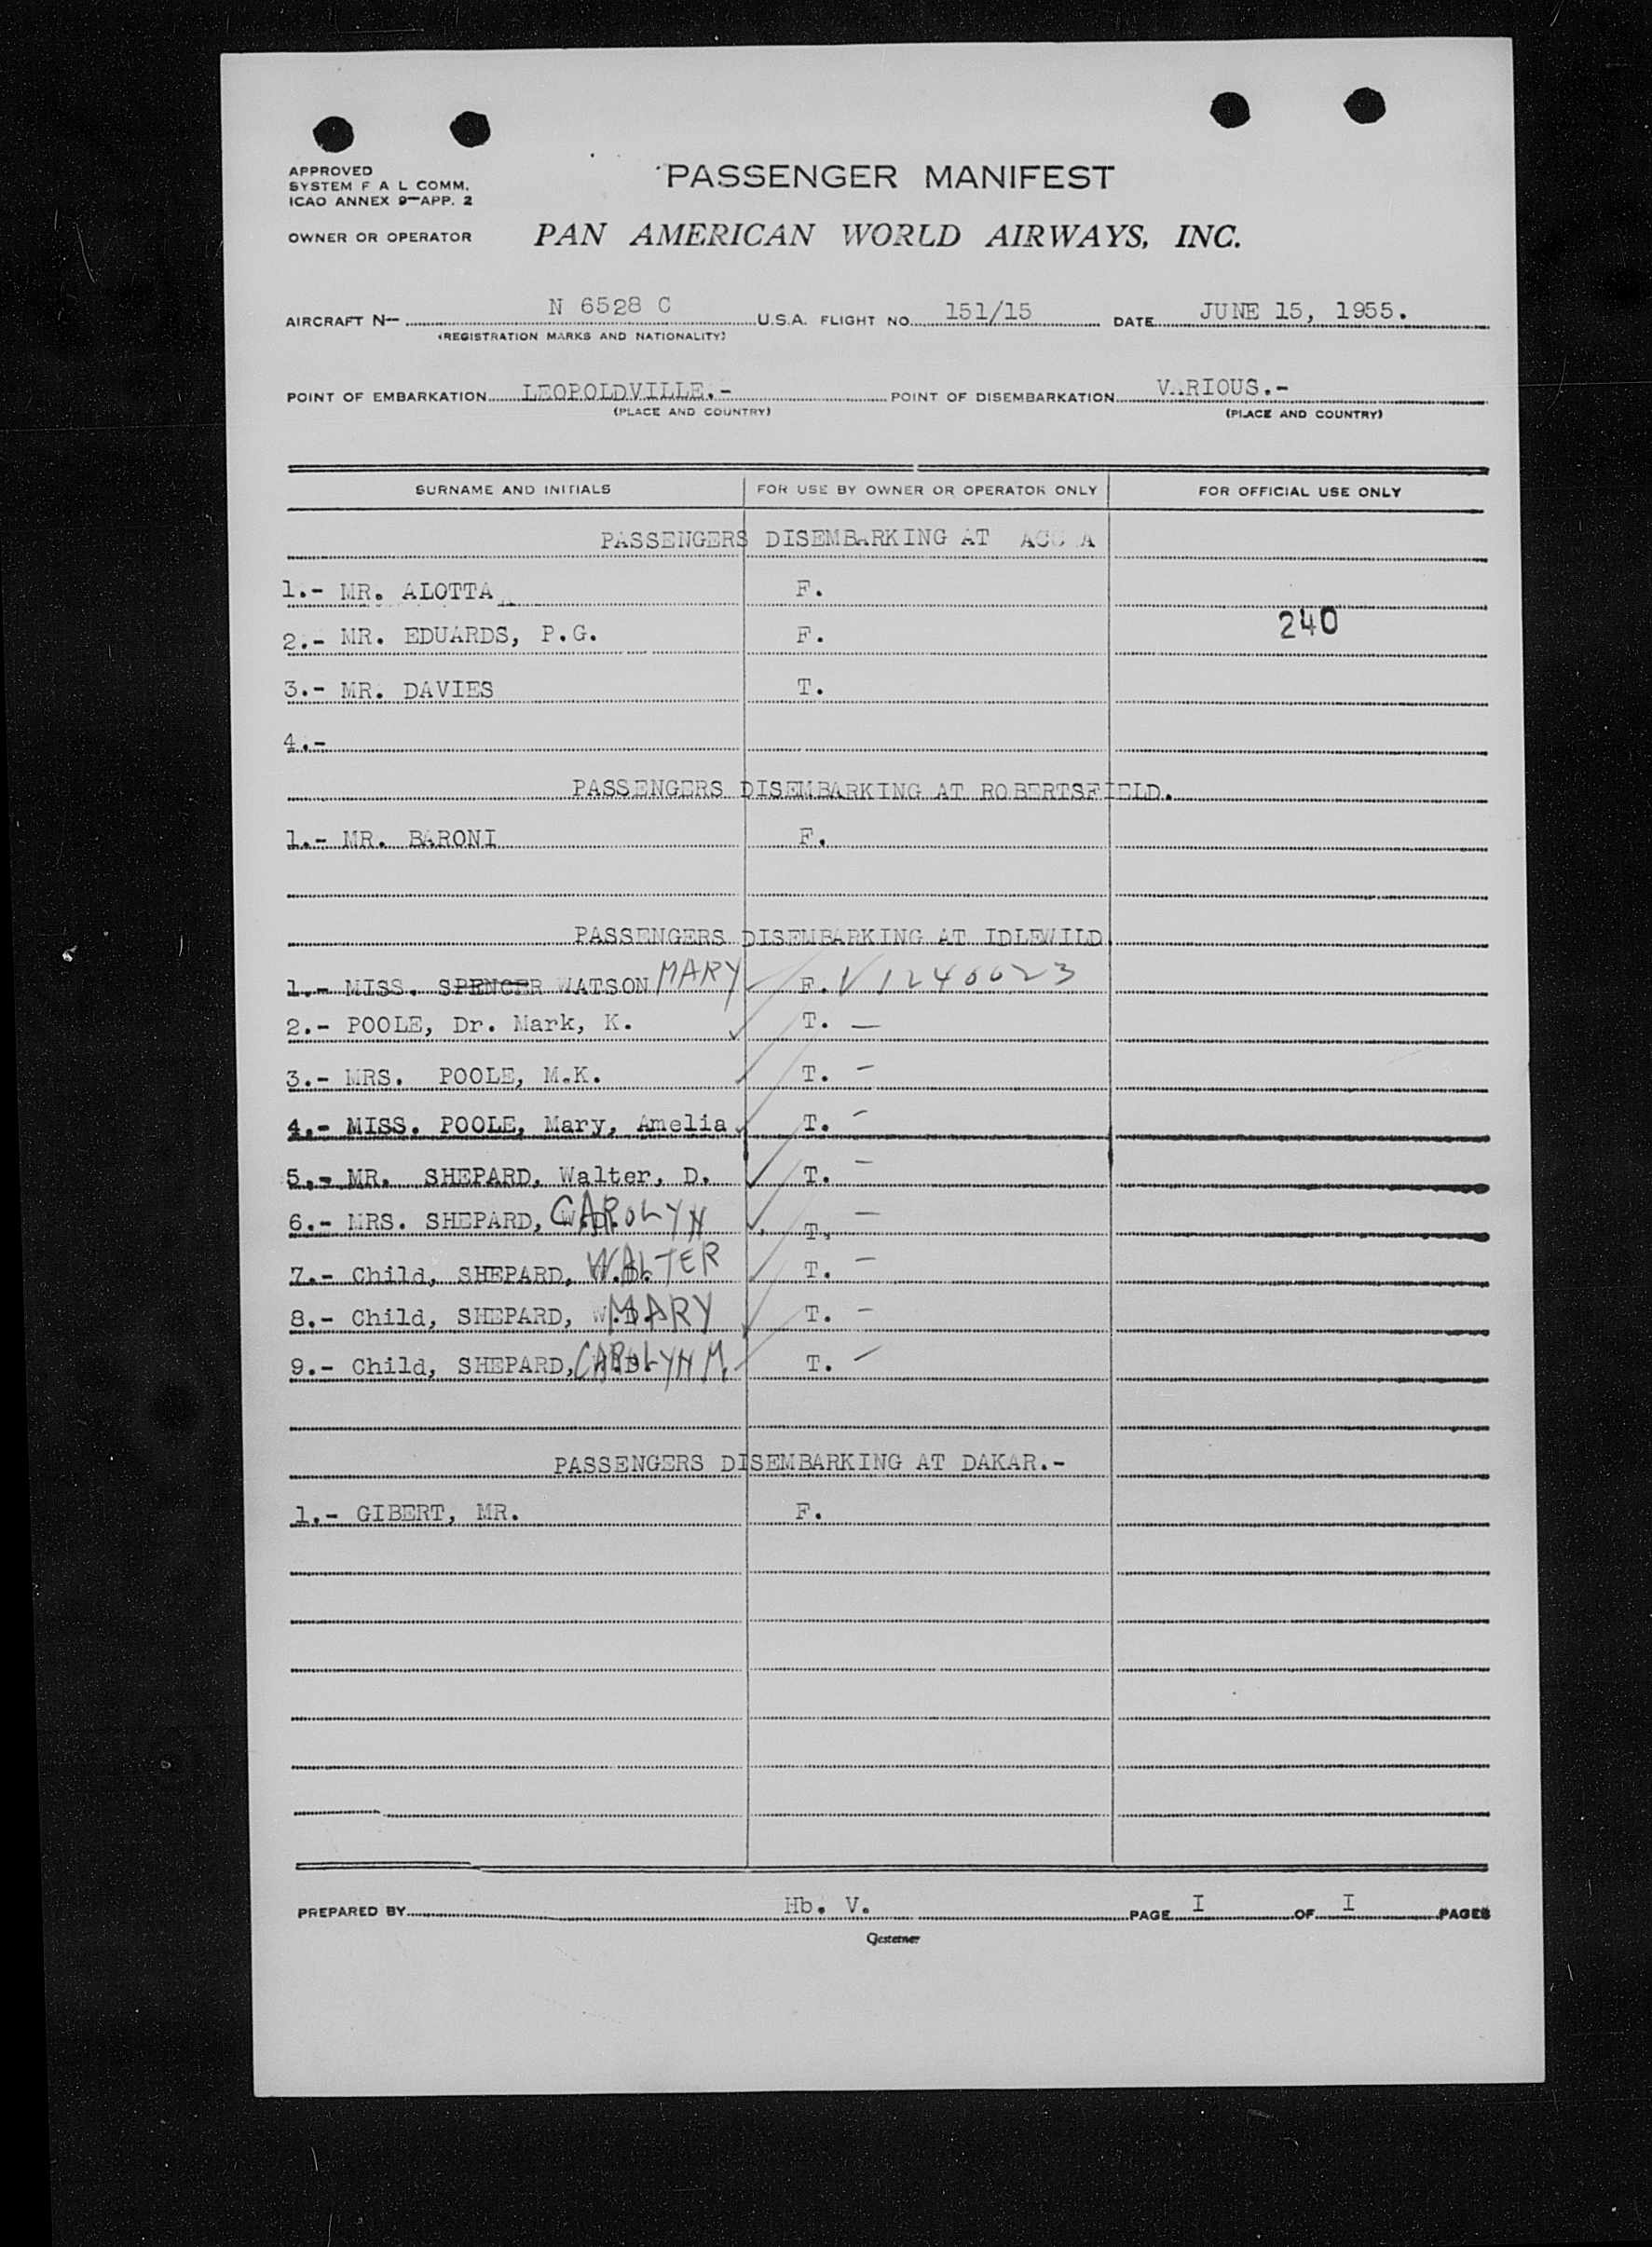 APPROVED
SYSTEM F A L COMM.
ICAO ANNEX 9—APP. 2
PASSENGER MANIFEST
OWNER OR OPERATOR PAN AMERICAN WORLD AIRWAYS, INC.
AIRCRAFT N— N 6528 C U.S.A. FLIGHT NO. 151/15 DATE JUNE 15, 1955.
(REGISTRATION MARKS AND NATIONALITY)
POINT OF EMBARKATION LEOPOLDVILLE.- POINT OF DISEMBARKATION VARIOUS.-
(PLACE AND COUNTRY) (PLACE AND COUNTRY)
SURNAME AND INITIALS FOR USE BY OWNER OR OPERATOR ONLY FOR OFFICIAL USE ONLY
PASSENGERS DISEMBARKING AT ACCRA
1.- MR. ALOTTA F.
240
2.- MR. EDUARDS, P.G. F.
3.- MR. DAVIES T.
4.-
PASSENGERS DISEMBARKING AT ROBERTSFIELD.
1.- MR. BARONI F.
PASSENGERS DISEMBARKING AT IDLEWILD.
1.- MISS. SPENCER WATSON MARY F. V1240023
2.- POOLE, Dr. Mark, K. T. —
3.- MRS. POOLE, M.K. T. -
4.- MISS. POOLE, Mary, Amelia T. -
5.- MR. SHEPARD, Walter, D. T. —
6.- MRS. SHEPARD, W.D. CAROLYN T. —
7.- Child, SHEPARD, WALTER T. -
8.- Child, SHEPARD, W.D. MARY T. -
9.- Child, SHEPARD, CAROLYN M. T. -
PASSENGERS DISEMBARKING AT DAKAR.-
1.- GIBERT, MR. F.
PREPARED BY Hb. V. PAGE I OF I PAGES
Gestetner